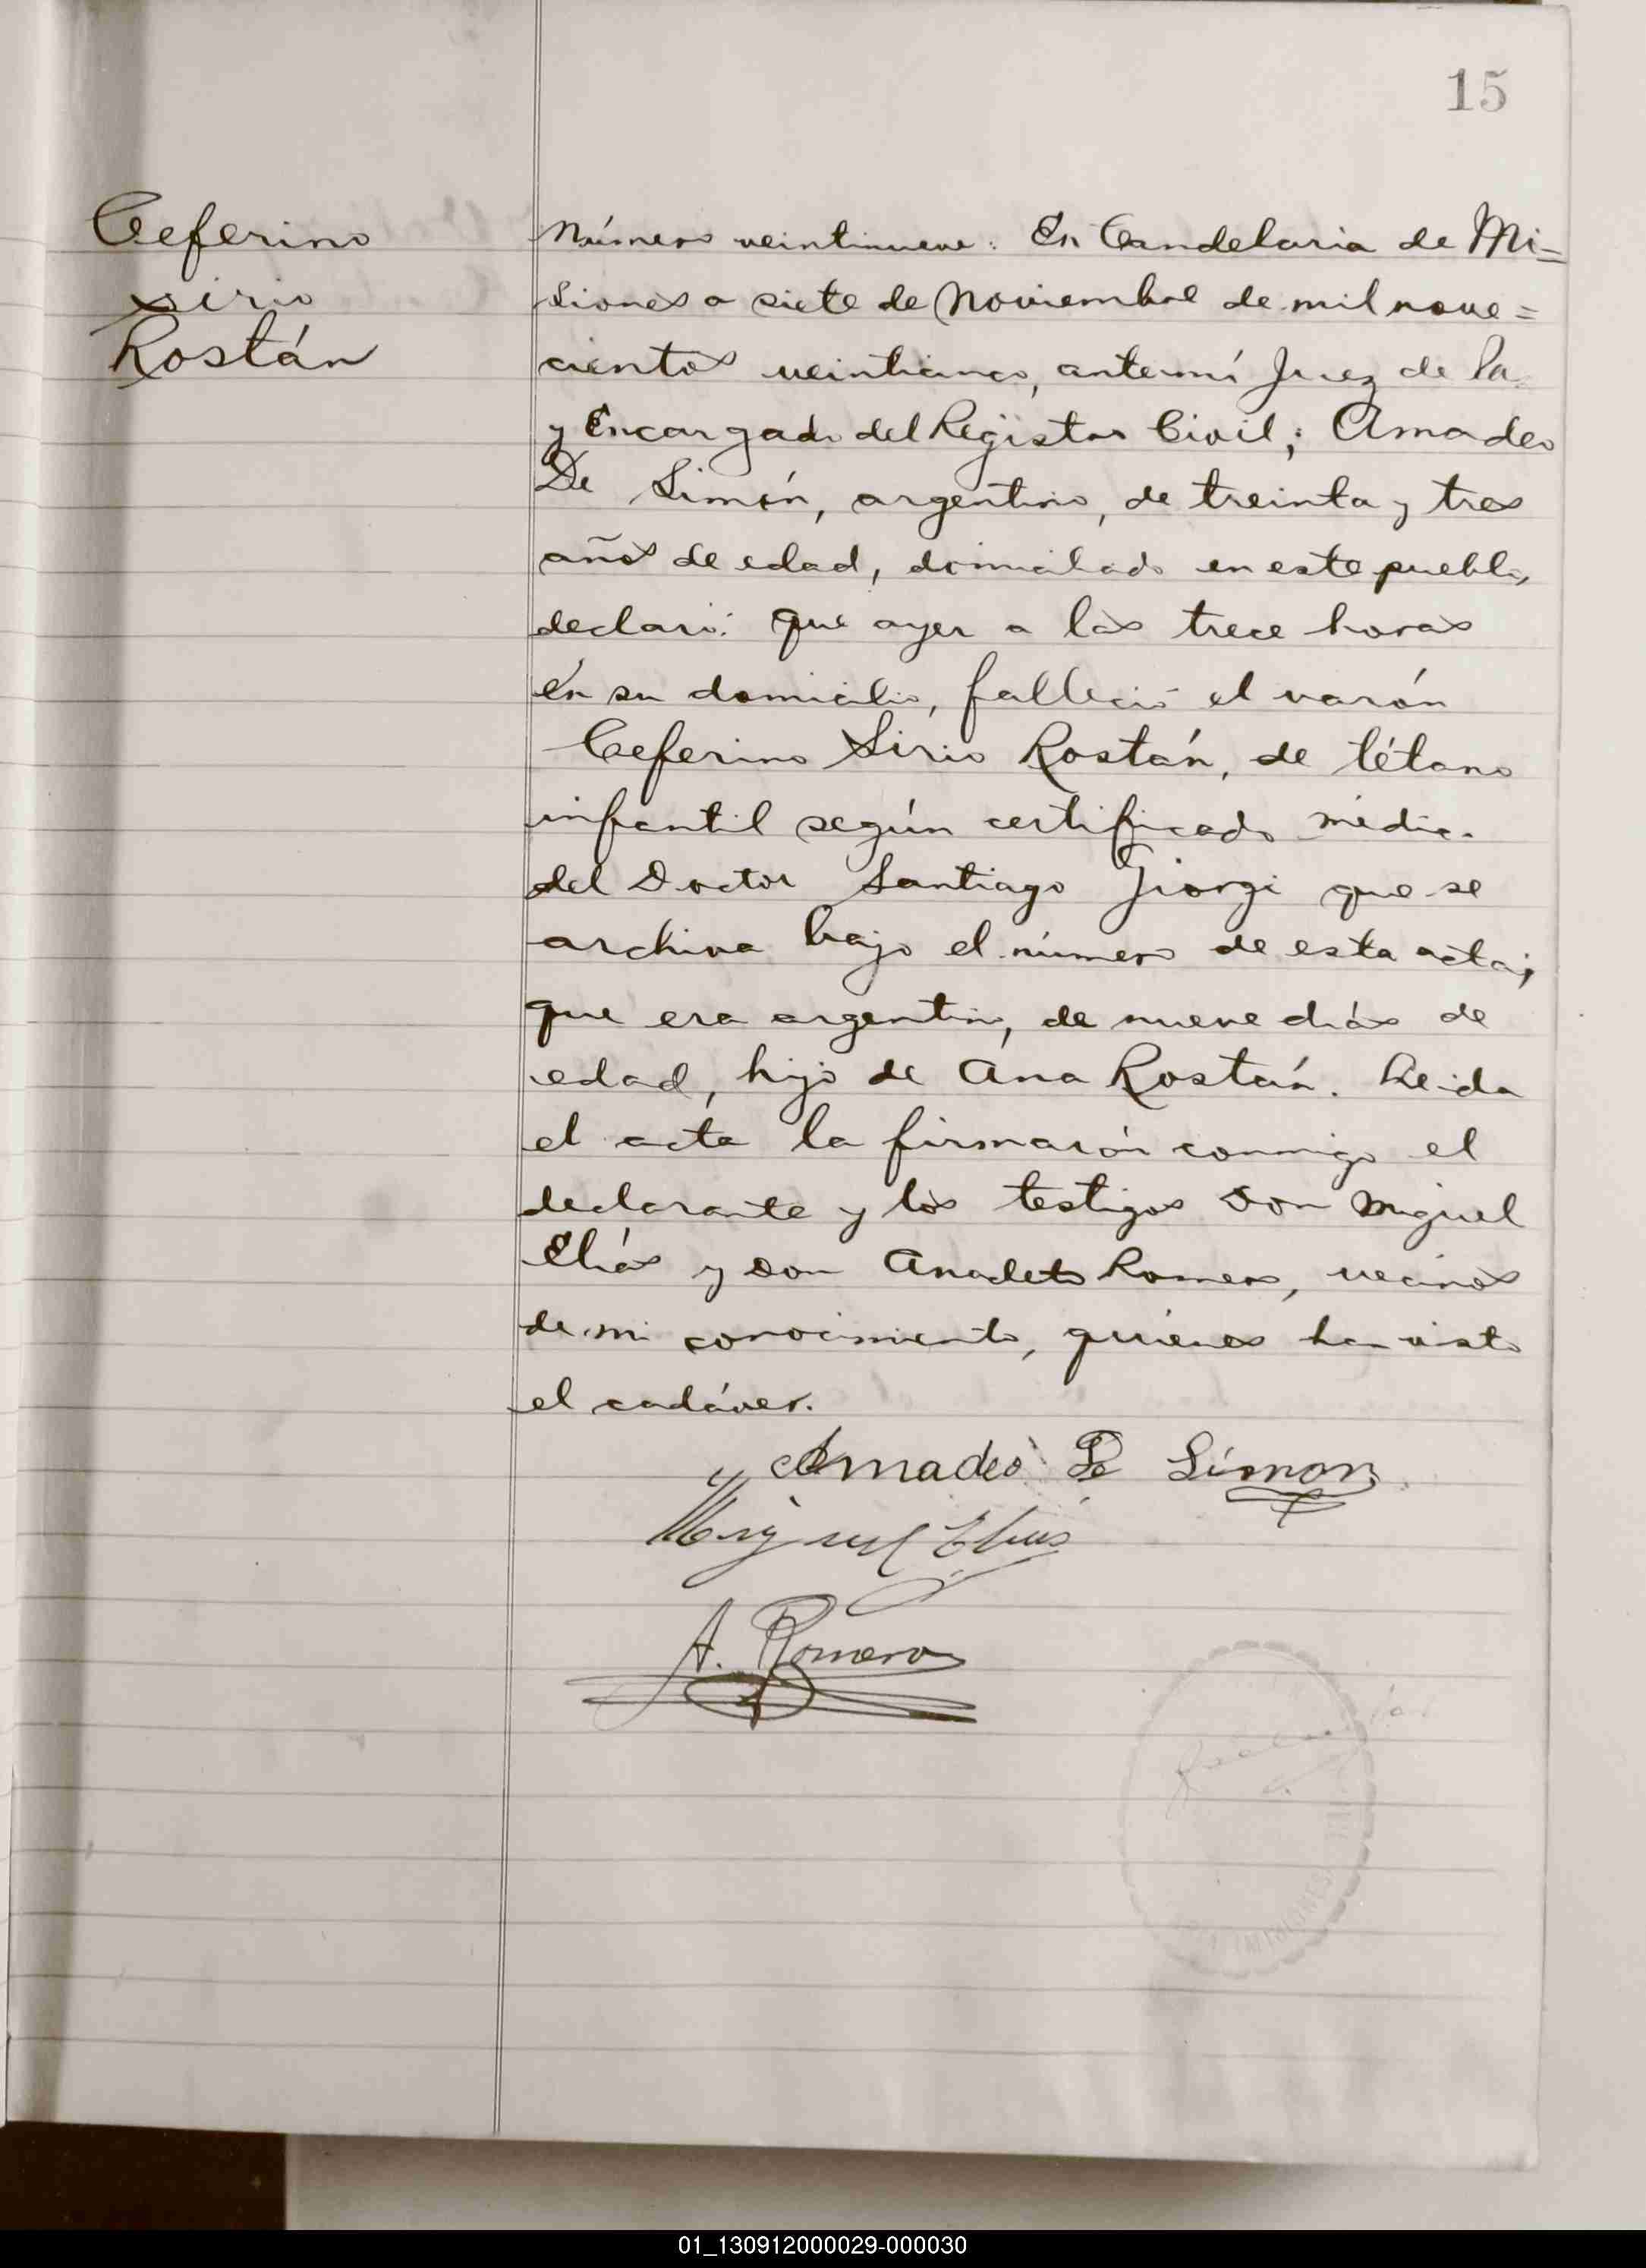 15
Ceferino
Sirio
Rostán
Número veintinueve: En Candelaria de Mi=
siones a siete de Noviembre de mil nove=
cientos veinticinco, ante mí Juez de Pa
y Encargado del Registro Civil; Amadeo
De Simón, argentino, de treinta y tres
años de edad, domiciliado en este pueblo,
declaró: que ayer a las trece horas
en su domicilio, falleció el varón
Ceferino Sirio Rostán, de tétano
infantil según certificado médico
del Doctor Santiago Giorgi que se
archiva bajo el número de esta acta;
que era argentino, de nueve días de
edad, hijo de Ana Rostán. Leida
el acta la firmarón conmigo el
declarante y los testigos Don Miguel
Elías y Don Anacleto Romero, vecinos
de mi conocimiento, quiénes han visto
el cadáver.
Amadeo De Simon
Miguel Elias
A. Romero
01_130912000029-000030